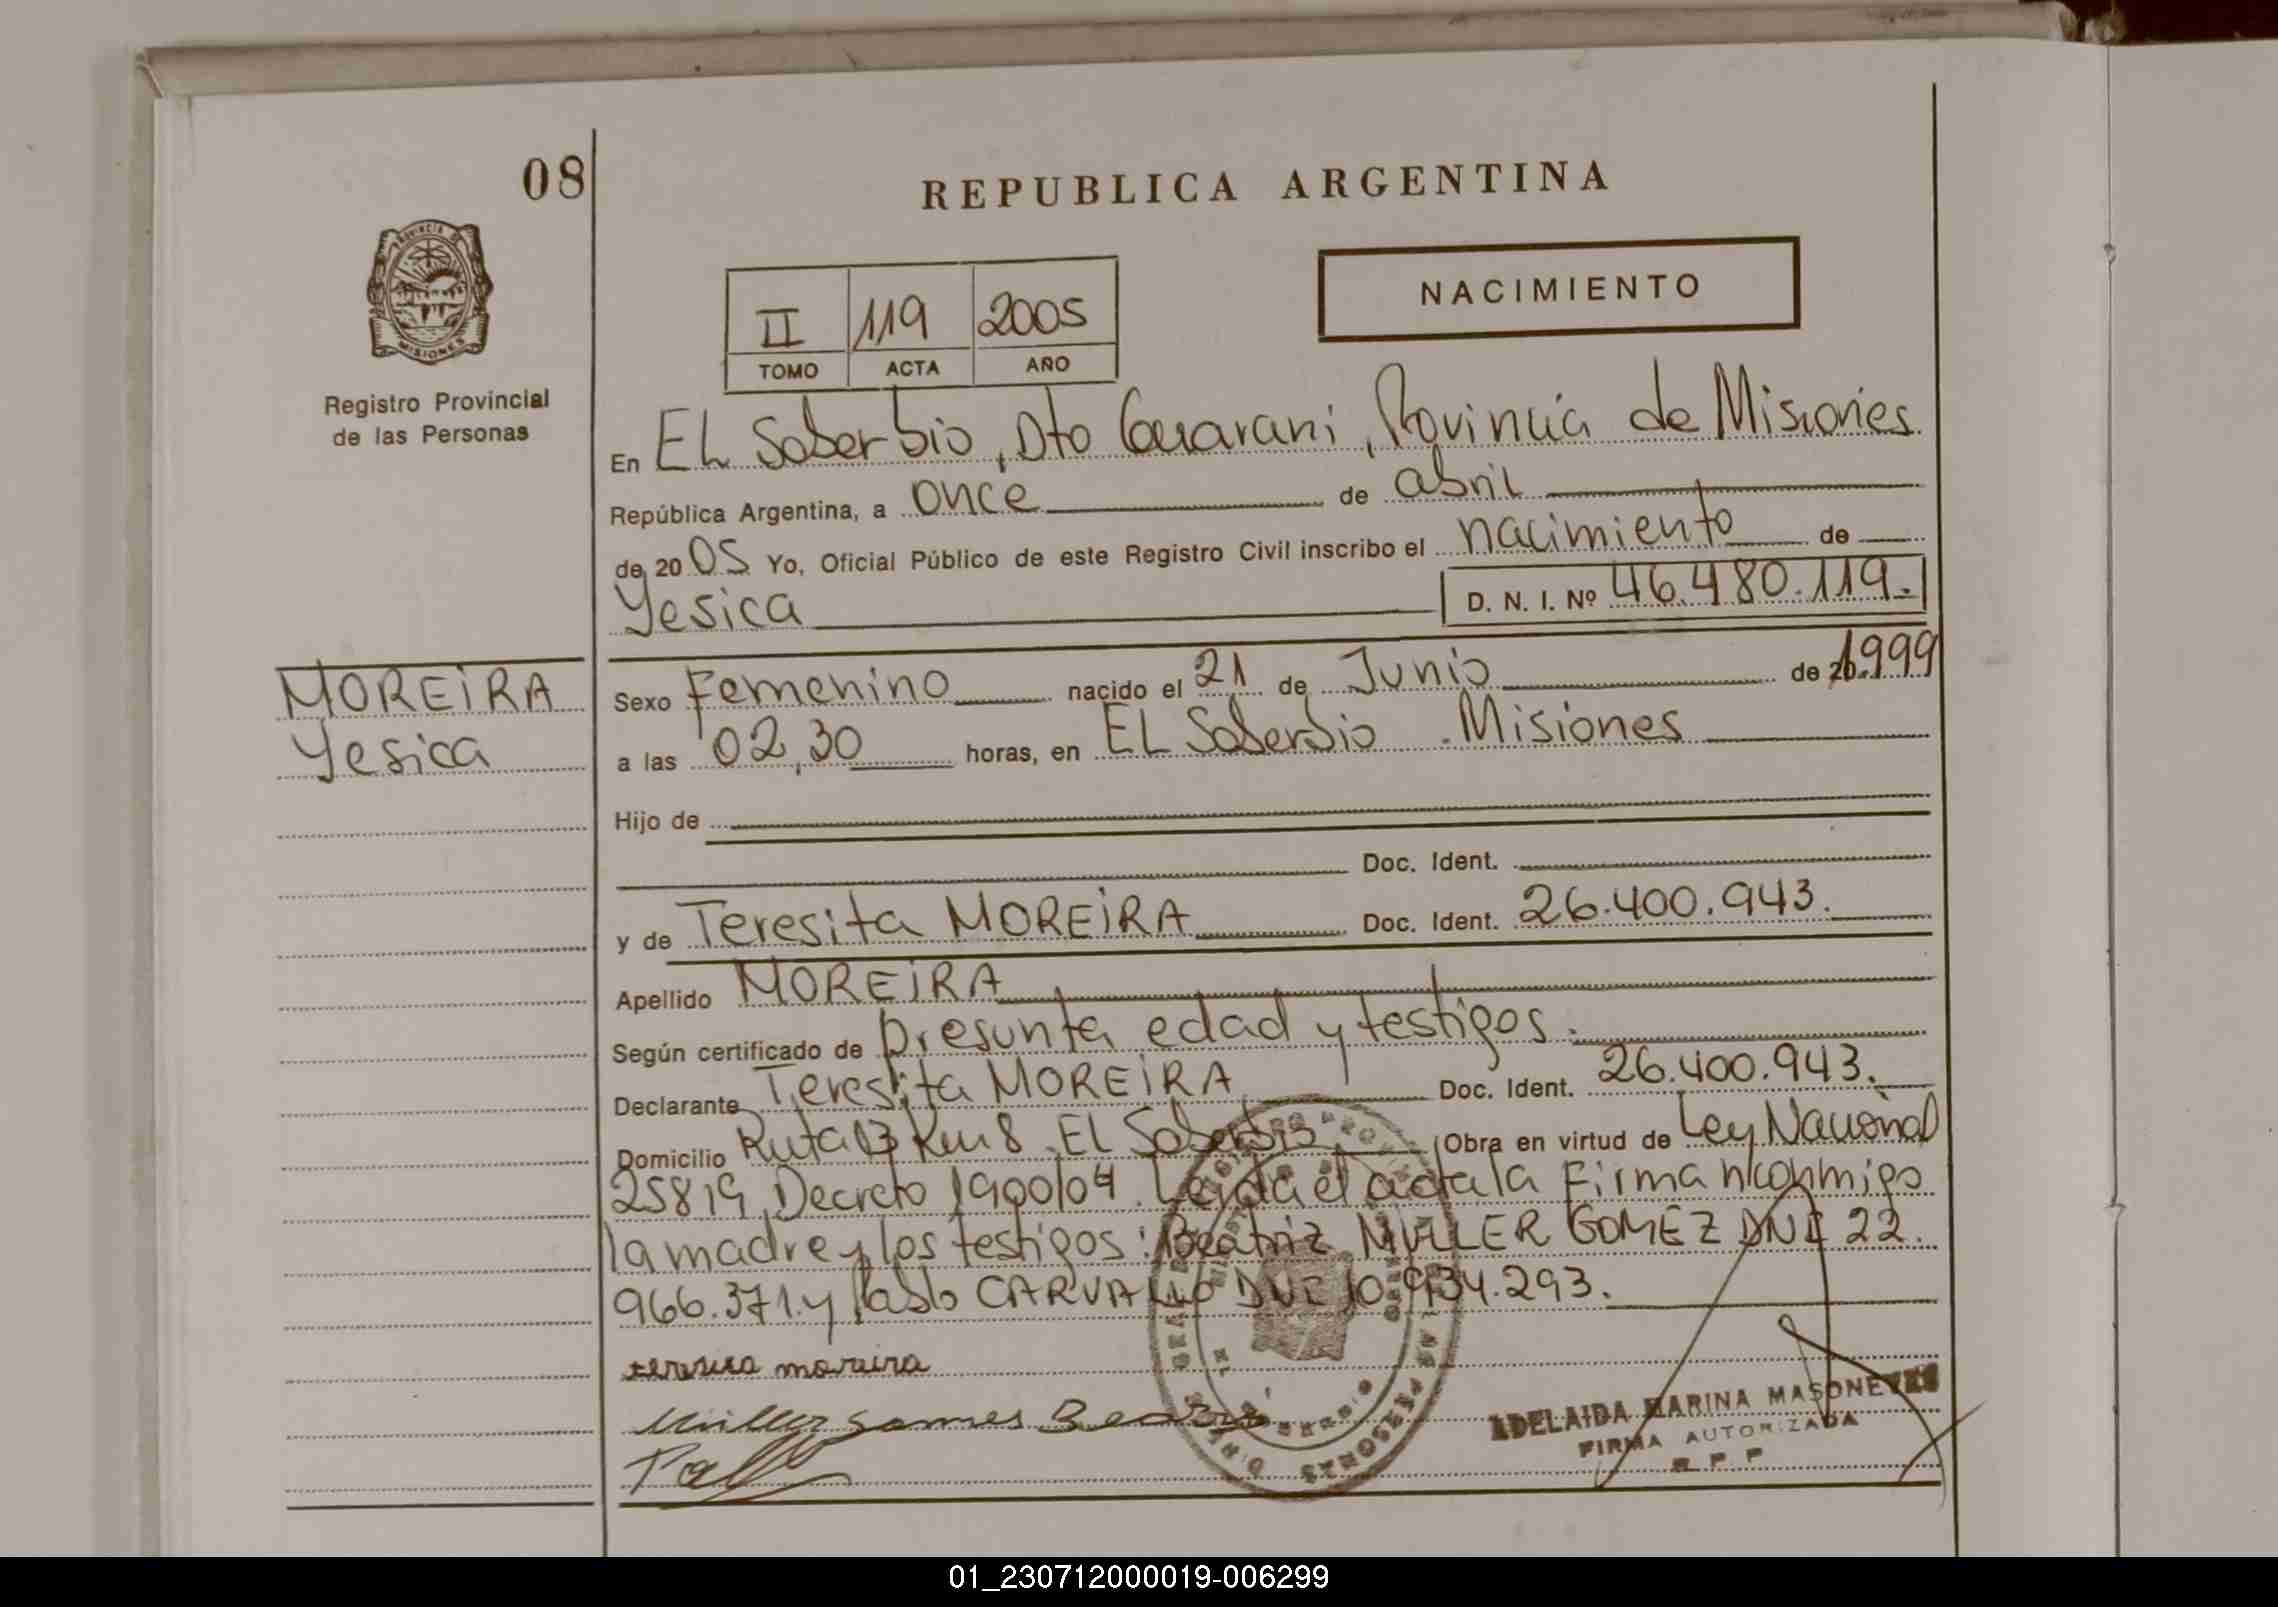 08
REPUBLICA ARGENTINA
PROVINCIA DE
MISIONES
Registro Provincial
de las Personas
II 119 2005
TOMO ACTA AÑO
NACIMIENTO
En EL Soberbio, Dto Guarani, Provincia de Misiones
República Argentina, a once de abril
de 2005 Yo, Oficial Público de este Registro Civil inscribo el nacimiento de
Yesica D. N. I. Nº 46.480.119.
MOREIRA
Yesica
Sexo Femenino nacido el 21 de Junio de 20 1999
a las 02,30 horas, en EL Soberbio Misiones
Hijo de
Doc. Ident.
y de Teresita MOREIRA Doc. Ident. 26.400.943.
Apellido MOREIRA
Según certificado de presunta edad y testigos.
Declarante Teresita MOREIRA Doc. Ident. 26.400.943.
Domicilio Ruta 13 Km 8 EL Soberbio Obra en virtud de Ley Nacional
25819, Decreto 1900/04. Leida el acta la Firman conmigo
la madre y los testigos: Beatriz MULLER GOMEZ DNI 22.
966.371. y Pablo CARVALLO DNI 10.934.293.
moreira
ADELAIDA MARINA
FIRMA AUTORIZADA
R P P
01_230712000019-006299